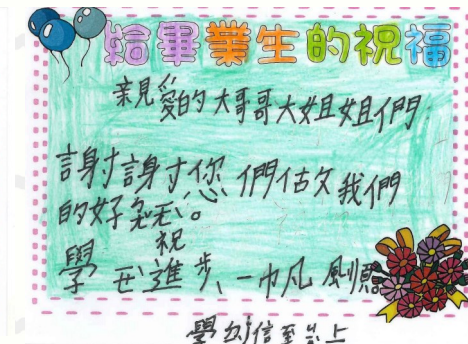 給畢業生的祝福
親愛的大哥哥大姐姐們
謝謝您們做我們
的好
祝
學 進步、一帆風順
學